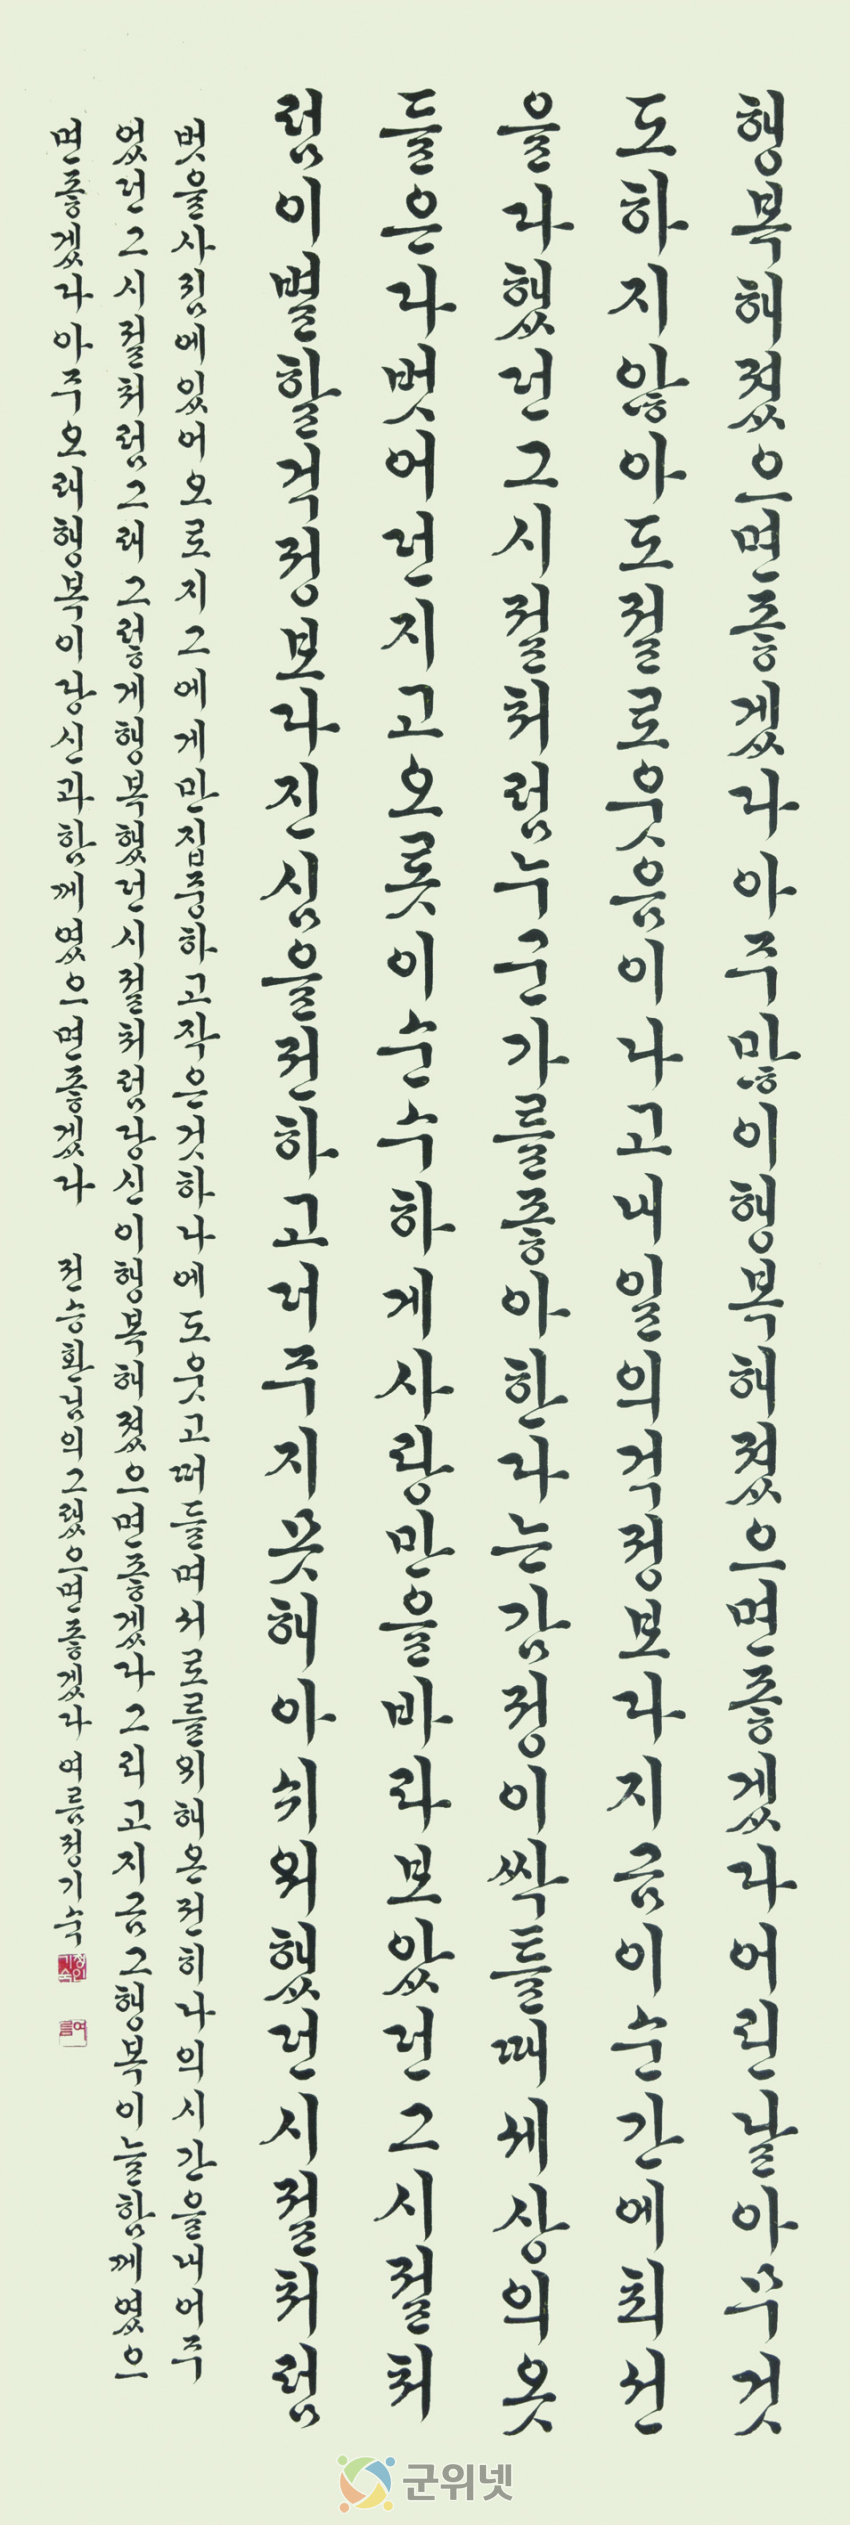 행복해졌으면좋겠다아주많이행복해졌으면좋겠다어린날아무것
도하지않아도절로웃음이나고내일의걱정보다지금이순간에최선
을다했던그시절처럼누군가를좋아한다는감정이싹틀때세상의옷
들은다벗어던지고오롯이순수하게사랑만을바라보았던그시절처
럼이별할걱정보다진심을전하고더주지못해아쉬워했던시절처럼
벗을사귐에있어오로지그에게만집중하고작은것하나에도웃고떠들며서로를위해온전히나의시간을내어주
었던그시절처럼그래그렇게행복했던시절처럼당신이행복해졌으면좋겠다그리고지금그행복이늘함께였으
면좋겠다아주오래행복이당신과함께였으면좋겠다 전승환님의그랬으면좋겠다여름정기숙
정인기숙
여름
군위넷